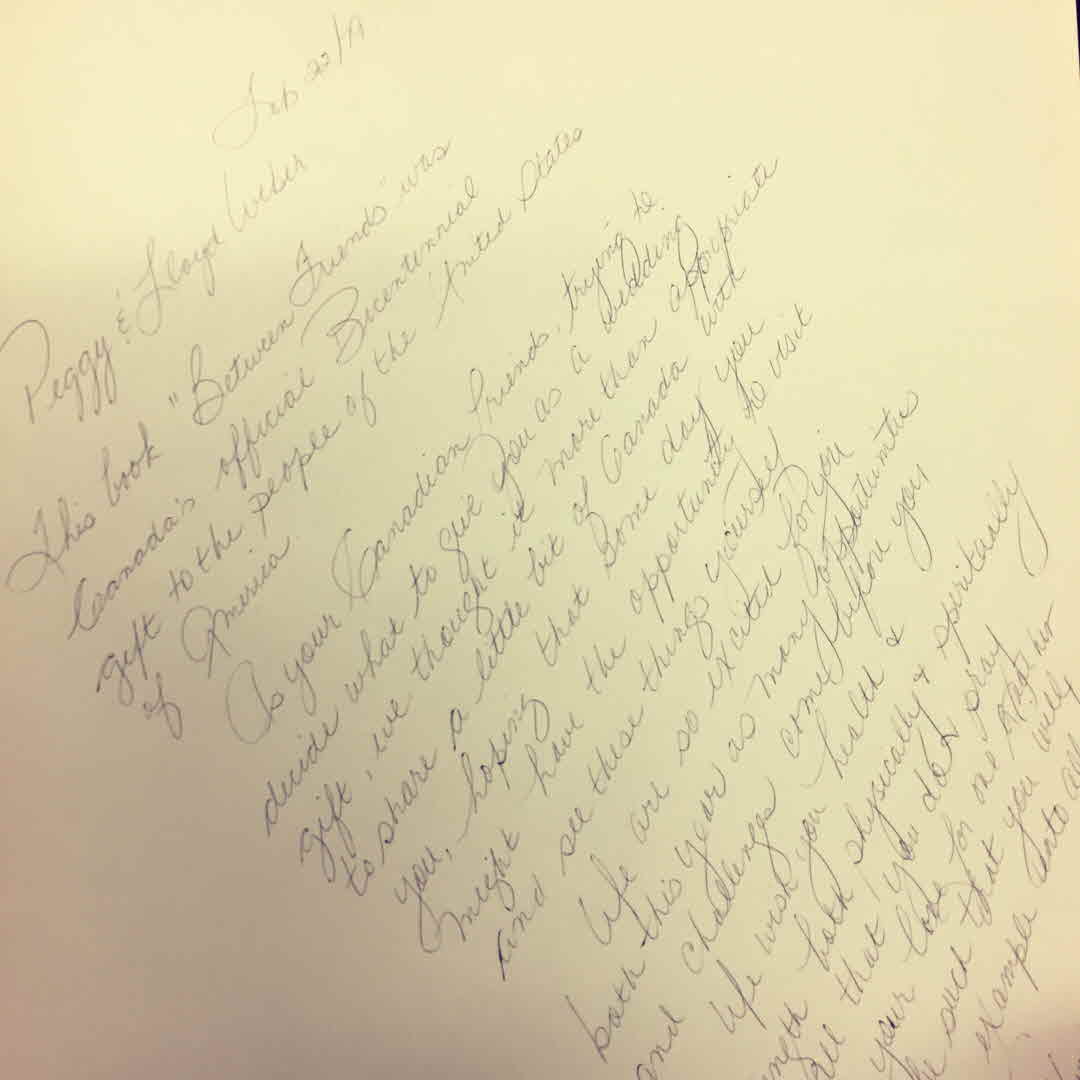 Feb 22/7
Peggy & Lloyd Weber
This book "Between Friends" was
Canada's official Bicentennial
gift to the people of the United States
of America.
As your Canadian friends, trying to
decide what to give you as a wedding
gift, we thought it more than appropriate
to share a little bit of Canada with
you, hoping that some day you
might have the opportunity to visit
and see these things yourself
We are so excited for you
both this year as many opportunities
and challenges come before you,
We wish you health &
both physically & spiritually
that you do & pray
your love for one
such that you will
example unto all